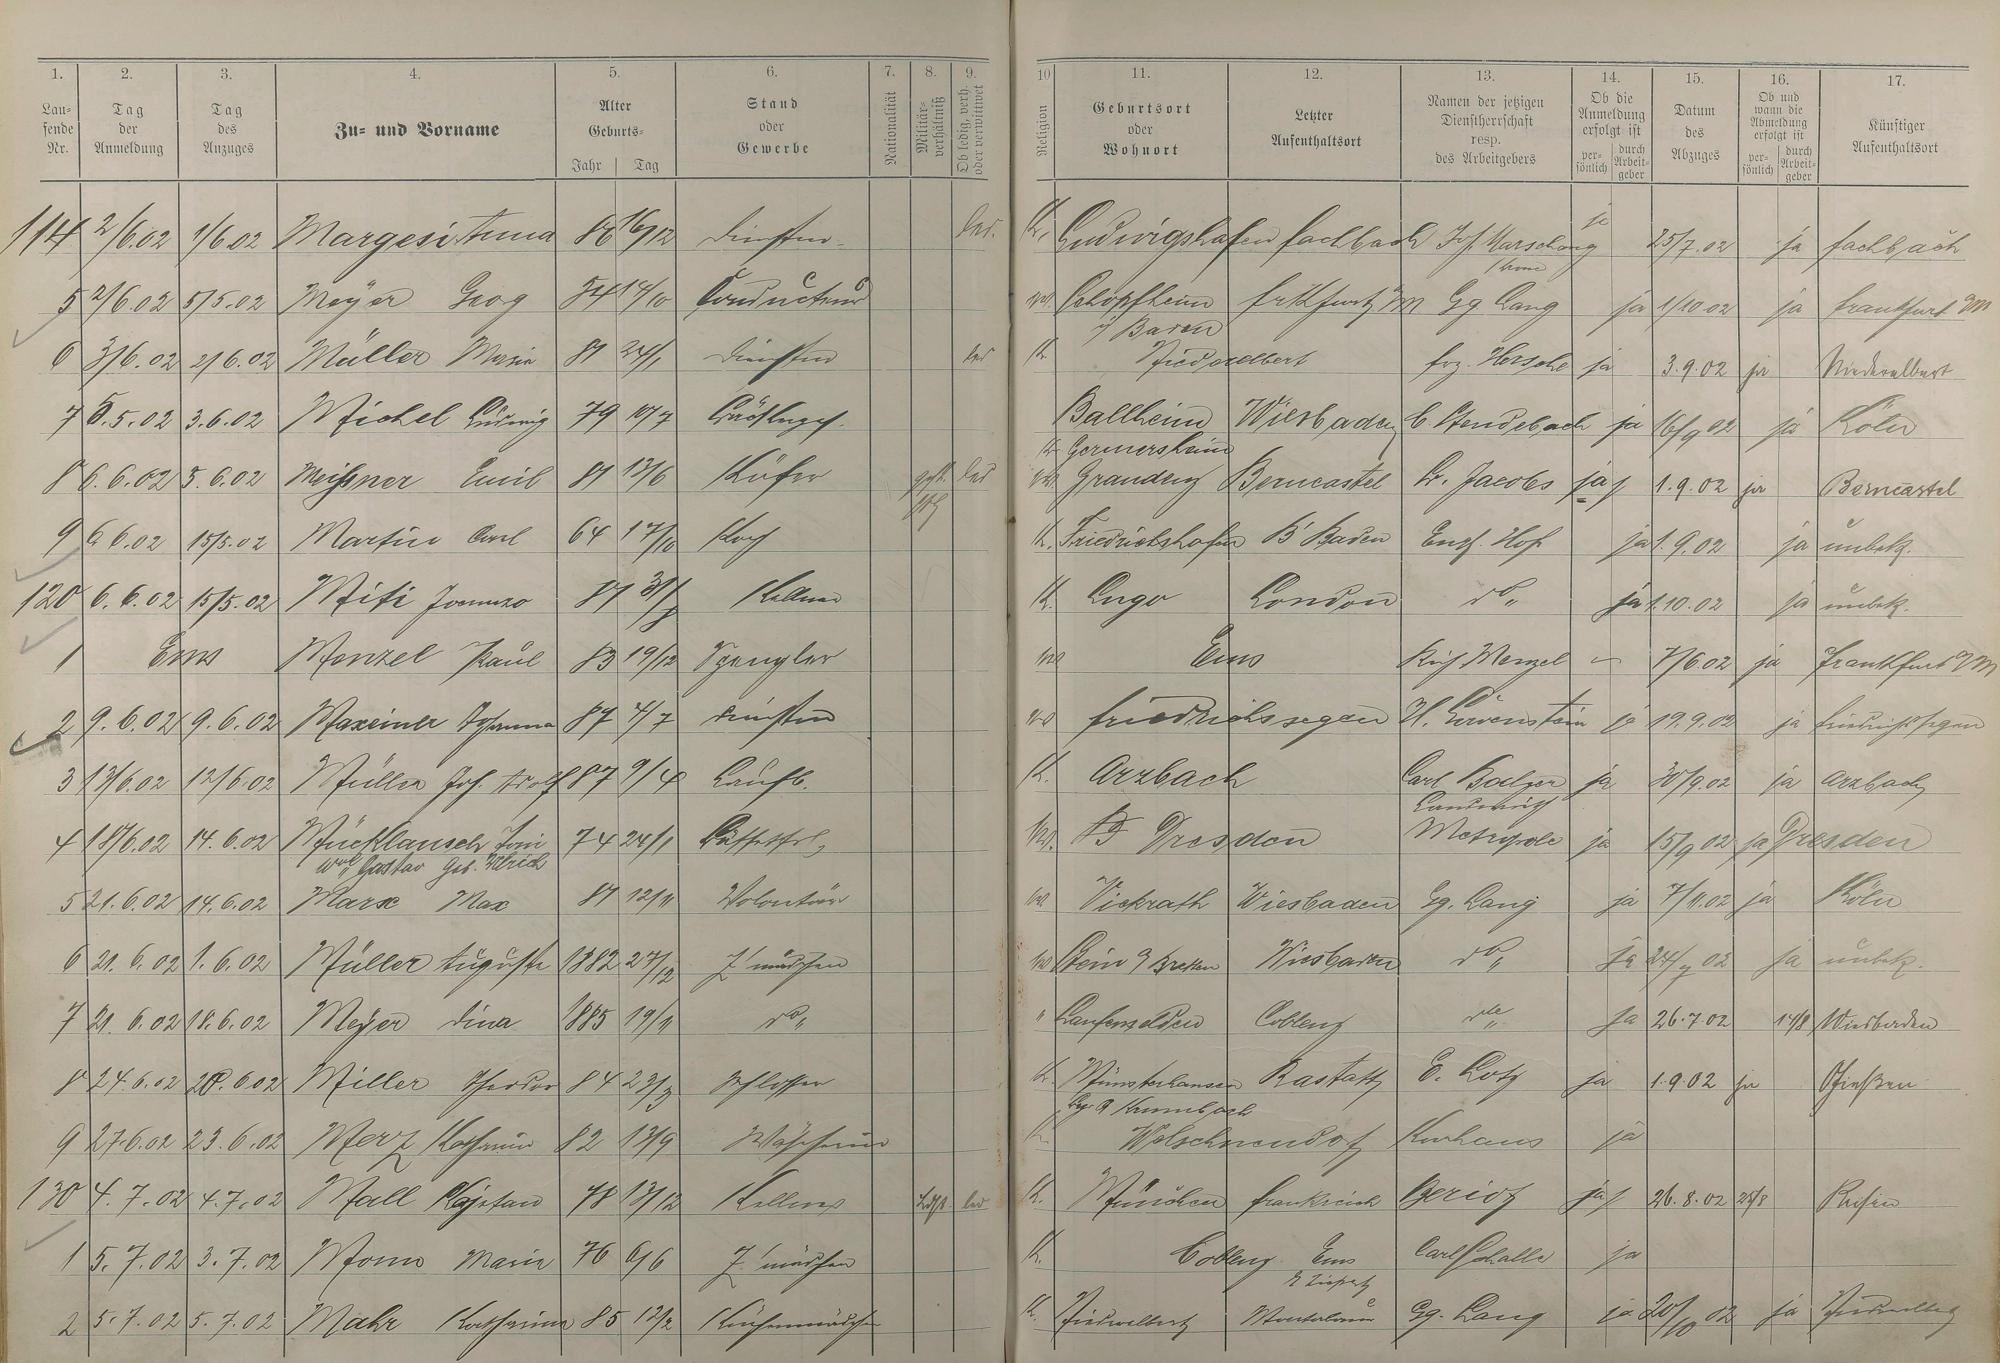 1. 2. 3. 4. 5. 6. 7. 8. 9. 10 11. 12. 13. 14. 15. 16. 17.
Lau-fende Nr. Tag der Anmeldung Tag des Anzuges Zu- und Vorname Alter Geburts- Jahr Tag Stand oder Gewerbe Nationalität Militär-verhältniß Ob ledig, verh. oder verwittwet Religion Geburtsort oder Wohnort Letzter Aufenthaltsort Namen der jetzigen Dienstherrschaft resp. des Arbeitgebers Ob die Anmeldung erfolgt ist per-sönlich durch Arbeit-geber Datum des Abzuges Ob und wann die Abmeldung erfolgt ist per-sönlich durch Arbeit-geber Künftiger Aufenthaltsort
114 2/6.02 1/6.02 86 16/12 led. K. Ludwigshafen Fachbach Jos. ja 25/7.02 ja Fachbach
5 2/6.02 5/5.02 Meyer Georg 14/10 Conducteur Schopfheim Frkfurt a/M Gg Lang ja 1/10 02 ja Frankfurt a/M
i/ Baden
6 3/6.02 2/6.02 Müller Maria 81 24/1 led K Niederelbert ja 3.9.02 ja Niederelbert
7 5.02 3.6.02 Michel Ludwig 79 10/7 Ballheim Wiesbaden C. Stendebach ja 16/9 02 ja Köln
K Germersheim
8 6.6.02 3.6.02 Meißner Emil 81 13/6 Küfer led Graudenz Berncastel Jacobs ja 1.9.02 ja Berncastel
9 6 6.02 15/5.02 Martin Carl 64 17/10 Koch K. Friedrichshafen B'Baden Engl. Hof ja 1.9.02 ja unbek.
120 6.6.02 15/5.02 Kellner K. Lugo London do ja 1.10.02 ja unbek.
1 Ems Menzel Paul 83 19/12 Spengler Ems Menzel 7/6.02 ja Frankfurt a/M
2 9.6.02 9.6.02 Maxeiner Johanna 4/7 Friedrichssegen H. Löwenstein ja 19.9.02 ja Friedrichssegen
3 13/6.02 12/6.02 Müller Jos. Adolf 87 9/4 Laufb. K. Arzbach Carl Balzer ja 30/9.02 ja Arzbach
4 18/6.02 14.6.02 Mücklausch Toni 74 24/1 Dresden Metropole ja 15/9 02 ja Dresden
Gustav geb. Ulrich
5 21.6.02 14.6.02 Marx Max 81 12/11 Volontär Vickrath Wiesbaden Gg. Lang ja 7/11.02 ja Köln
6 21.6.02 1.6.02 Müller Auguste 1882 27/12 Z'mädchen Stein b/ Bretten Wiesbaden do ja 02 ja unbek.
7 21.6.02 18.6.02 Meyer Dina 1885 19/11 do " Laufenselden Coblenz ja 26.7 02 14/8 Wiesbaden
8 24.6.02 6.02 Miller Theodor 84 23/3 Schlosser K. Münsterhausen Rastatt E. Lotz ja 1.9.02 ja Gießen
Krumbach
9 27.6.02 23.6.02 Merz Katharine 82 13/9 K. Welschneudorf Kurhaus ja
130 4.7.02 4.7.02 Mall Kajetan 78 13/12 Kellner led K. München Frankreich ja 26.8.02 25/8
1 5.7.02 3.7.02 Maria 76 6/6 Z'mädchen K. Coblenz Ems Carl Schalle ja
2 5.7.02 5.7.02 Mahr Katharina 85 12/2 Küchenmädchen K. Niederelbert Montabaur Gg. Lang ja 20/10 02 ja Niederelbert